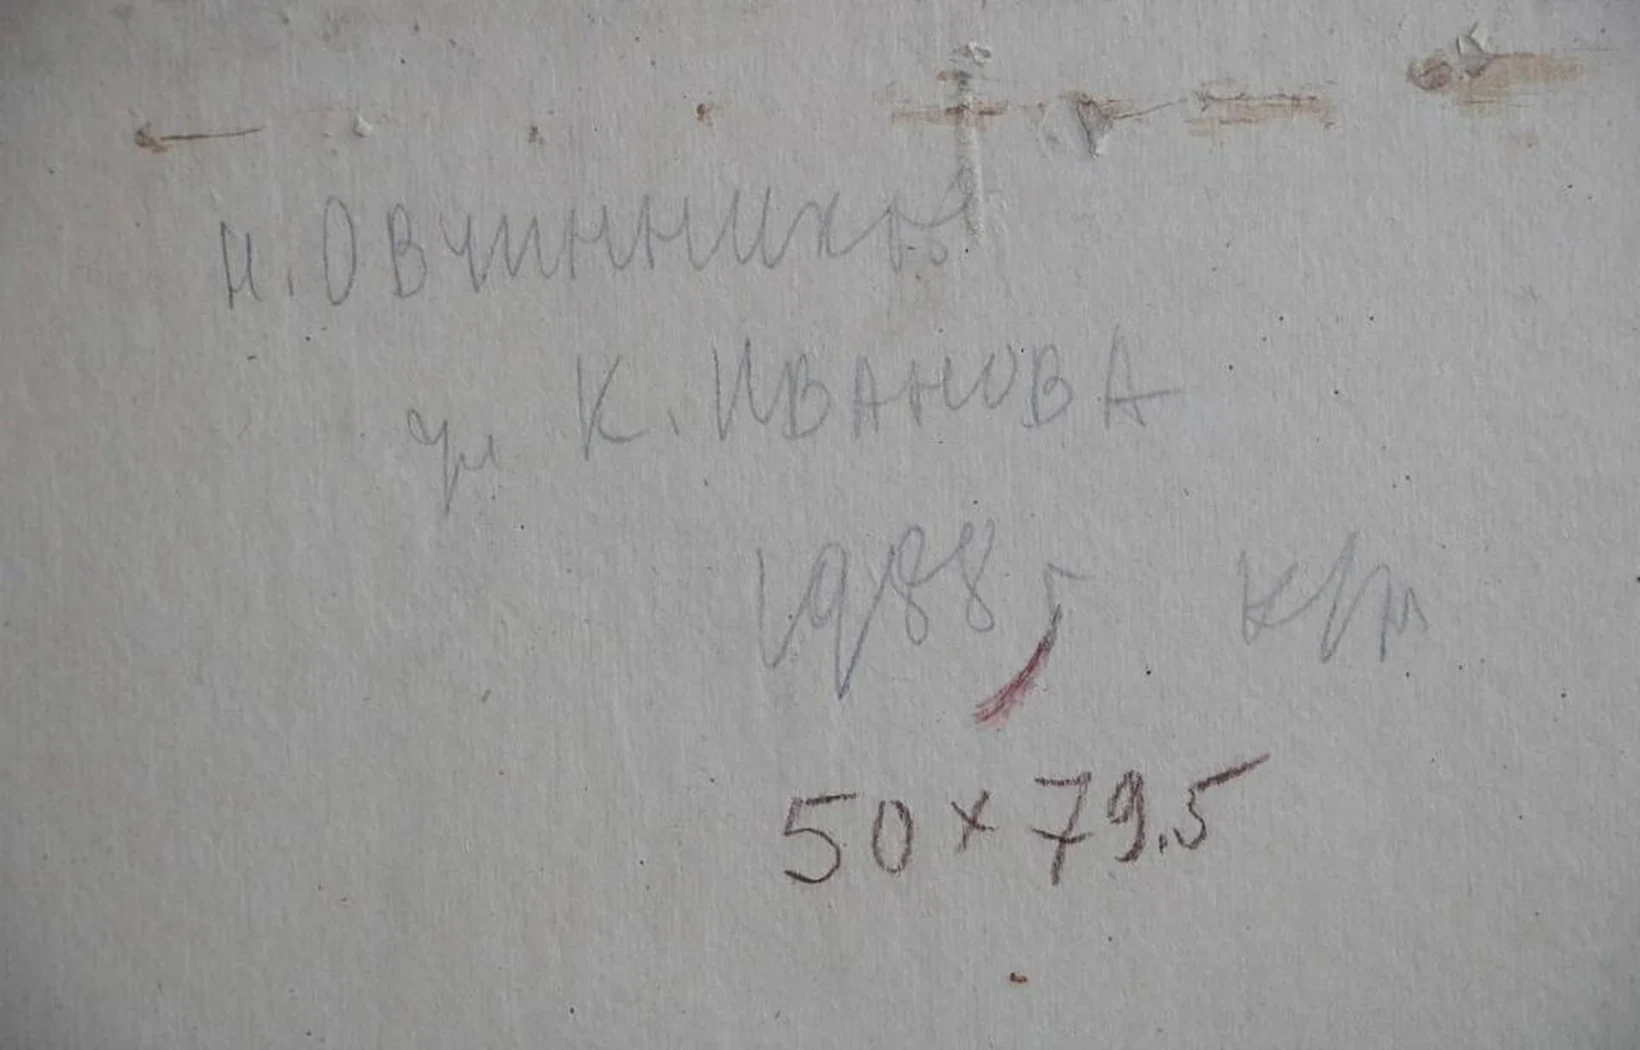 Н. Овчинников
ул К. ИВАНОВА
1988 г к/м
50 x 79.5